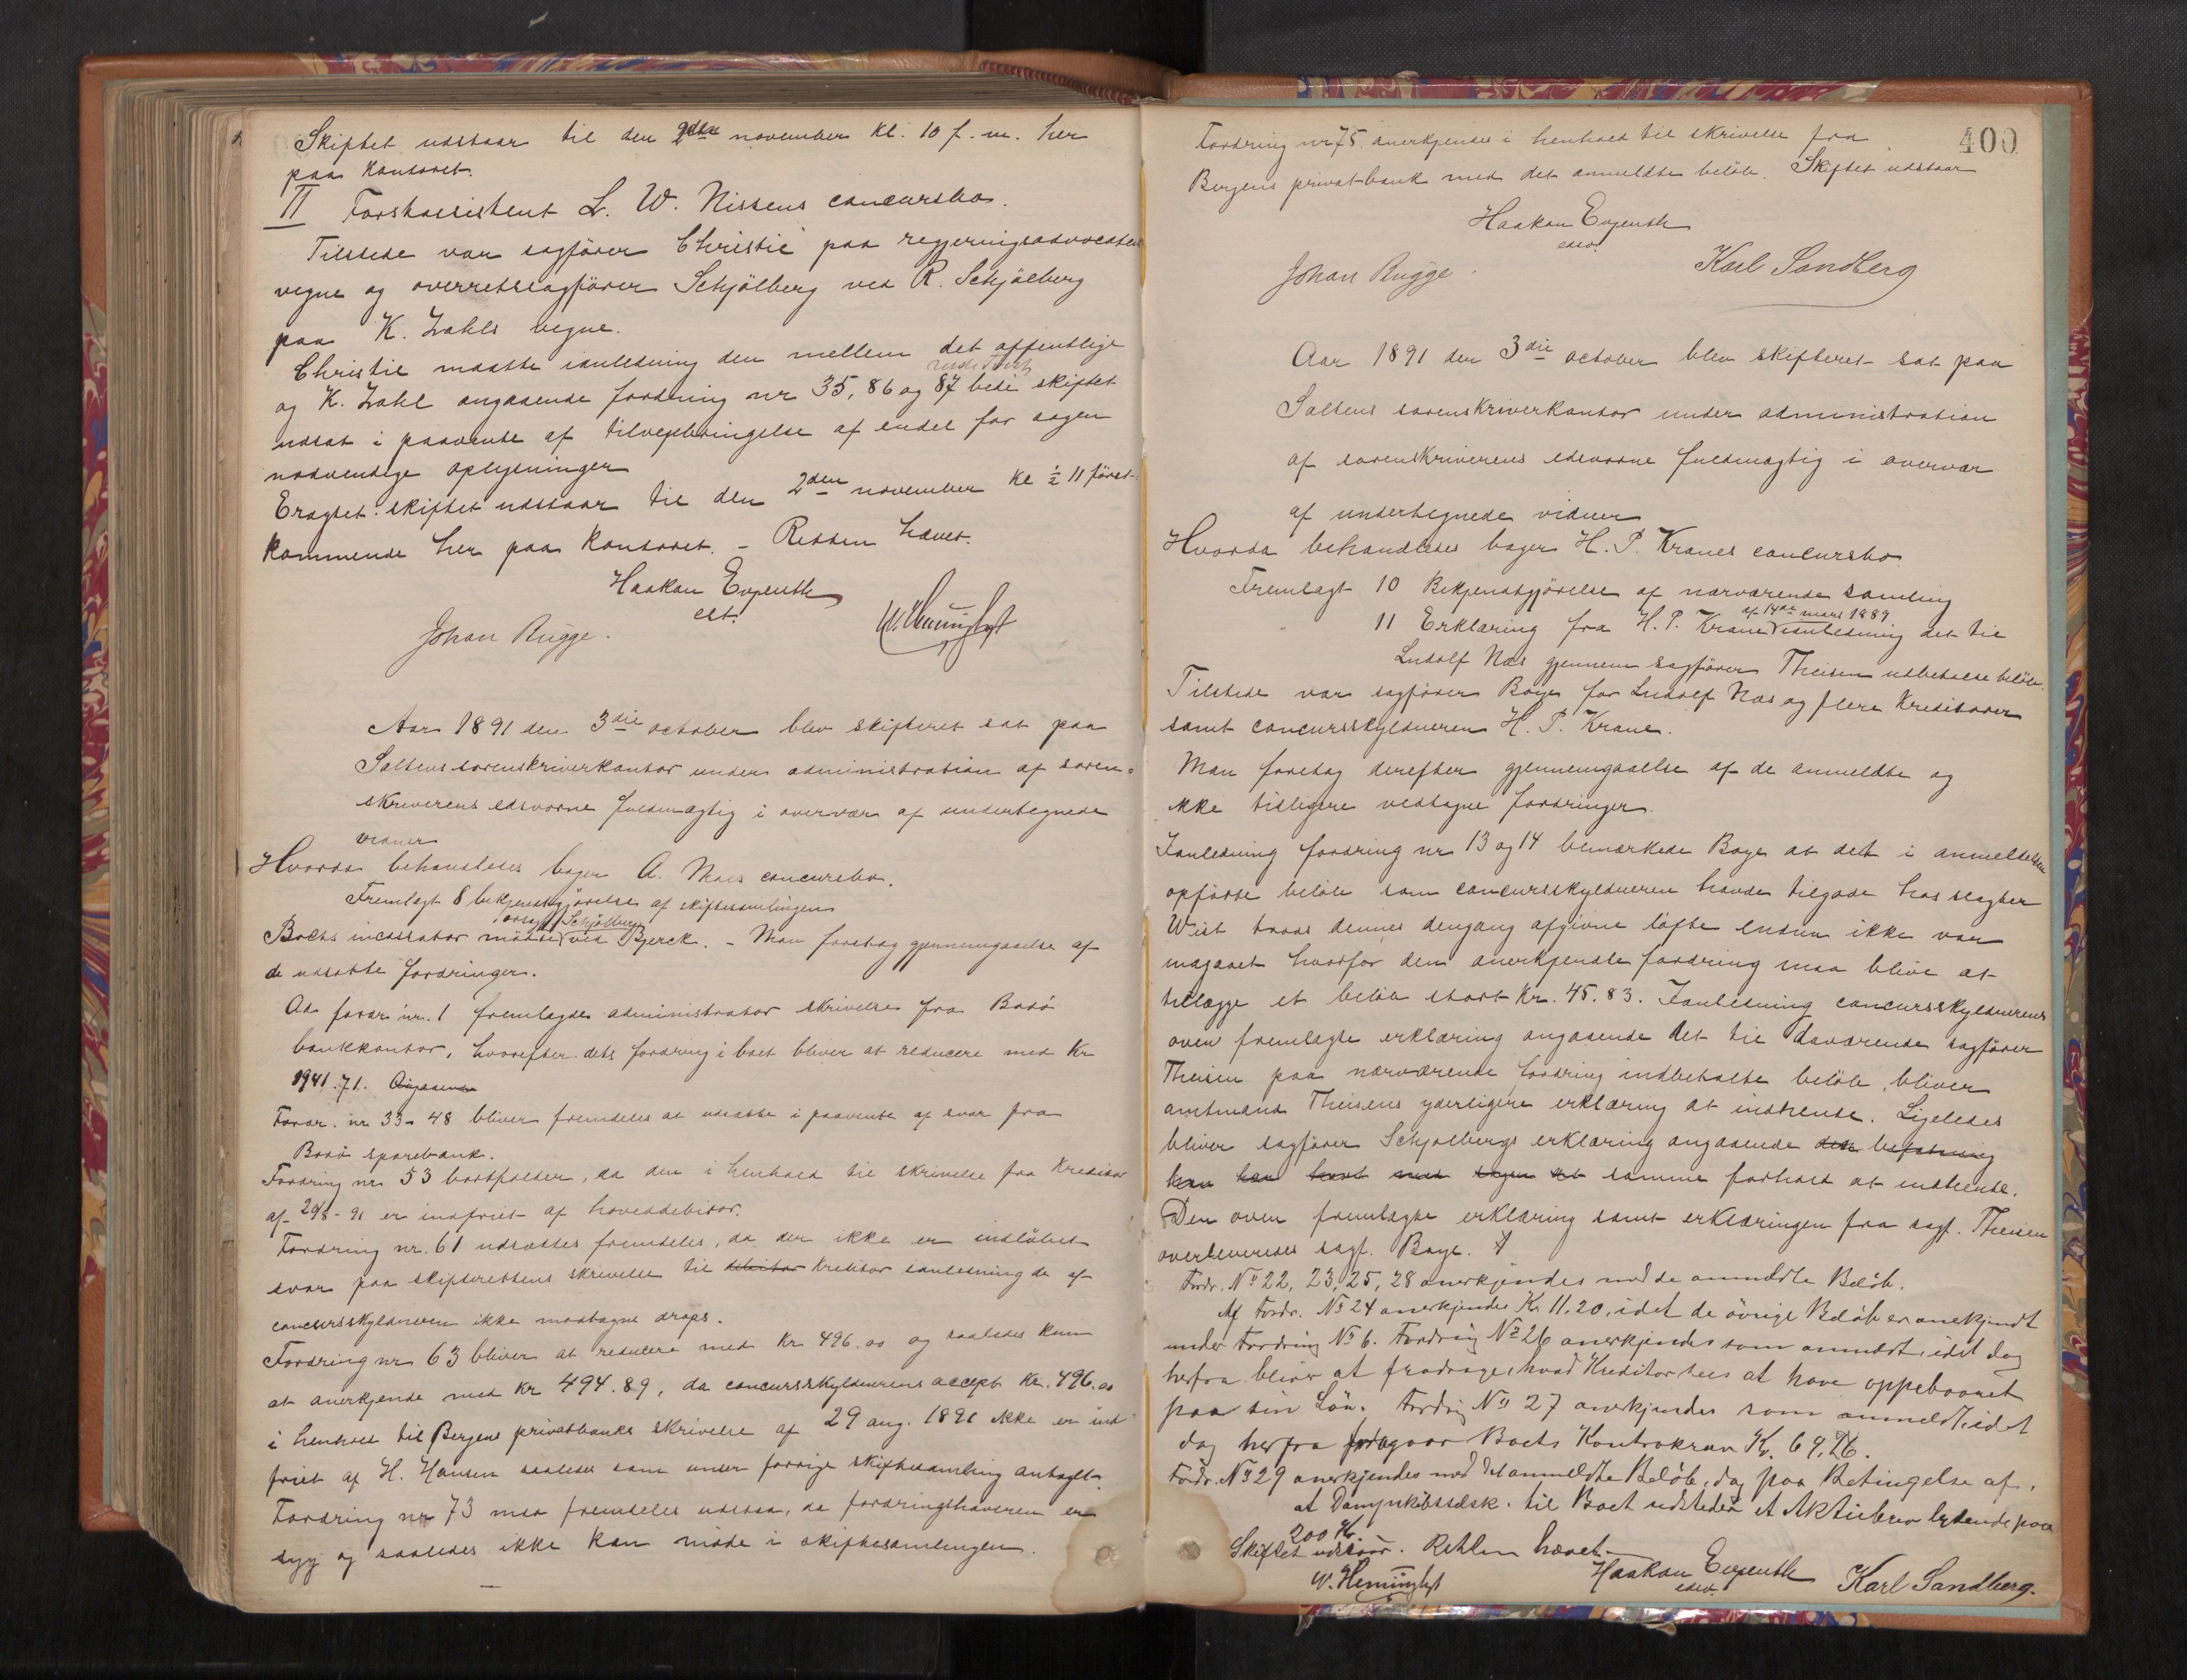 Skiftet udstaar til den 2den november kl. 10 f.m. her
paa kontoret.
II Forstassistent L. W. Nissens concursbo.
Tilstede var sagfører Christie paa regjeringsadvocatens
vegne og overretssagfører Schjölberg ved R. Schjölberg
paa K. Zahls vegne.
Christie maatte ianledning den mellem det offentlige
og K. Zahl angaaende fordring nr 35, 86 og 87 bede skiftet
udsat i paavente af tilvejebringelse af endel for sagen
nødvendige oplysninger
Eragtet: skiftet udstaar til den 2den november kl ½ 11 först-
kommende her paa kontoret. – Retten hævet.
Haakon Evjenth
edsv.
Johan Rugge.
Aar 1891 den 3die october blev skifteret sat paa
Saltens sorenskriverkontor under administration af soren-
skriverens edsvorne fuldmægtig i overvær af undertegnede
vidner
Hvorda behandledes bager A. Moes concursbo.
Fremlagt 8 bekjendtgjørelse af skiftesamlingen
Boets incassator mödte ved Bjerck. – Man foretog gjennemgaaelse af
orsagf Schjölberg
de udsatte fordringer.
Ad fordr. nr. 1 fremlagde administrator skrivelse fra Bodö
bankkontor, hvorefter dets fordring i boet bliver at reducere med Kr
1941.71. Angaaende
Fordr. nr 33–48 bliver fremdeles at udsætte i paavente af svar fra
Bodö sparebank.
Fordring nr 53 bortfalder, da den i henhold til skrivelse fra kreditor
af 29/8-91 er indfriet af hoveddebitor.
Fordring nr. 61 udsættes fremdeles, da der ikke er indløbet
svar paa skifterettens skrivelse til debitor kreditor ianledning de af
concursskyldneren ikke modtagne drops.
Fordring nr 63 bliver at reducere med Kr 496.00 og saaledes kun
at anerkjende med Kr 494.89, da concursskyldnerens accept Kr. 496.00
i henhold til Bergens privatbanks skrivelse af 29 aug. 1891 ikke er ind-
friet af H. Hansen saaledes som under forrige skiftesamling antaget.
Fordring nr 73 maa fremdeles udstaa, da fordringshaveren er
syg og saaledes ikke kan möde i skiftesamlingen.
400
Fordring nr 75 anerkjendes i henhold til skrivelse fra
Bergens privatbank med det anmeldte belöb. Skiftet udstaar
Haakon Evjenth
edsv.
Johan Rugge.
Karl Sandberg
Aar 1891 den 3die october blev skifteret sat paa
Saltens sorenskriverkontor under administration
af sorenskriverens edsvorne fuldmægtig i overvær
af undertegnede vidner
Hvorda behandledes bager H. P. Kranes concursbo
Fremlagt 10 Bekjendtgjörelse af nærværende samling
" 11 Erklæring fra H. P. Krane af 14de mars 1889 ianledning det til
Ludolf Næs gjennem sagförer Theisen udbetalte belöb.
Tilstede var sagförer Boye for Ludolf Næs og flere kreditorer
samt concursskyldneren H. P. Krane.
Man foretog derefter gjennemgaaelse af de anmeldte og
ikke tidligere vedtagne fordringer.
Ianledning fordring nr 13 og 14 bemærkede Boye at det i anmeldelsen
opförte belöb som concursskyldneren havde tilgode hos slagter
Wist trods dennes dengang afgivne löfte endnu ikke var
indgaaet hvorfor den anerkjendte fordring maa blive at
tillægge et belöb stort Kr. 45.83. Ianledning concursskyldnerens
oven fremlagte erklæring angaaende det til daværende sagförer
Theisen paa nærværende fordring indbetalte belöb, bliver
amtmand Theisens yderligere erklæring at indhente. Ligeledes
bliver sagförer Schjölbergs erklæring angaaende den befatning
han har havt med sagen at samme forhold at indhente.
Den oven fremlagte erklæring samt erklæringen fra sagf. Theisen
overleveredes sagf. Boye.
Fordr. No 22, 23, 25, 28 anerkjendes med de anmeldte Belöb.
Af Fordr. No 24 anerkjendes Kr. 11.20, idet de övrige Belöb er anerkjendt
under Fordring No 6. Fordring No 26 anerkjendes som anmeldt, idet dog
herfra bliver at fradrage, hvad Kreditor sees at have oppebaaret
paa sin Lön. Fordring No 27 anerkjendes som anmeldt, idet
dog herfra fragaar Boets Kontrakrav Kr. 69.26.
Fordr. No 29 anerkjendes med det anmeldte Belöb, dog paa Betingelse af,
at Dampskibsselsk. til Boet udsteder et Aktiebrev lydende paa
200 Kr.
Skiftet udstaar. Retten hævet.
Haakon Evjenth
edsv.
Karl Sandberg.